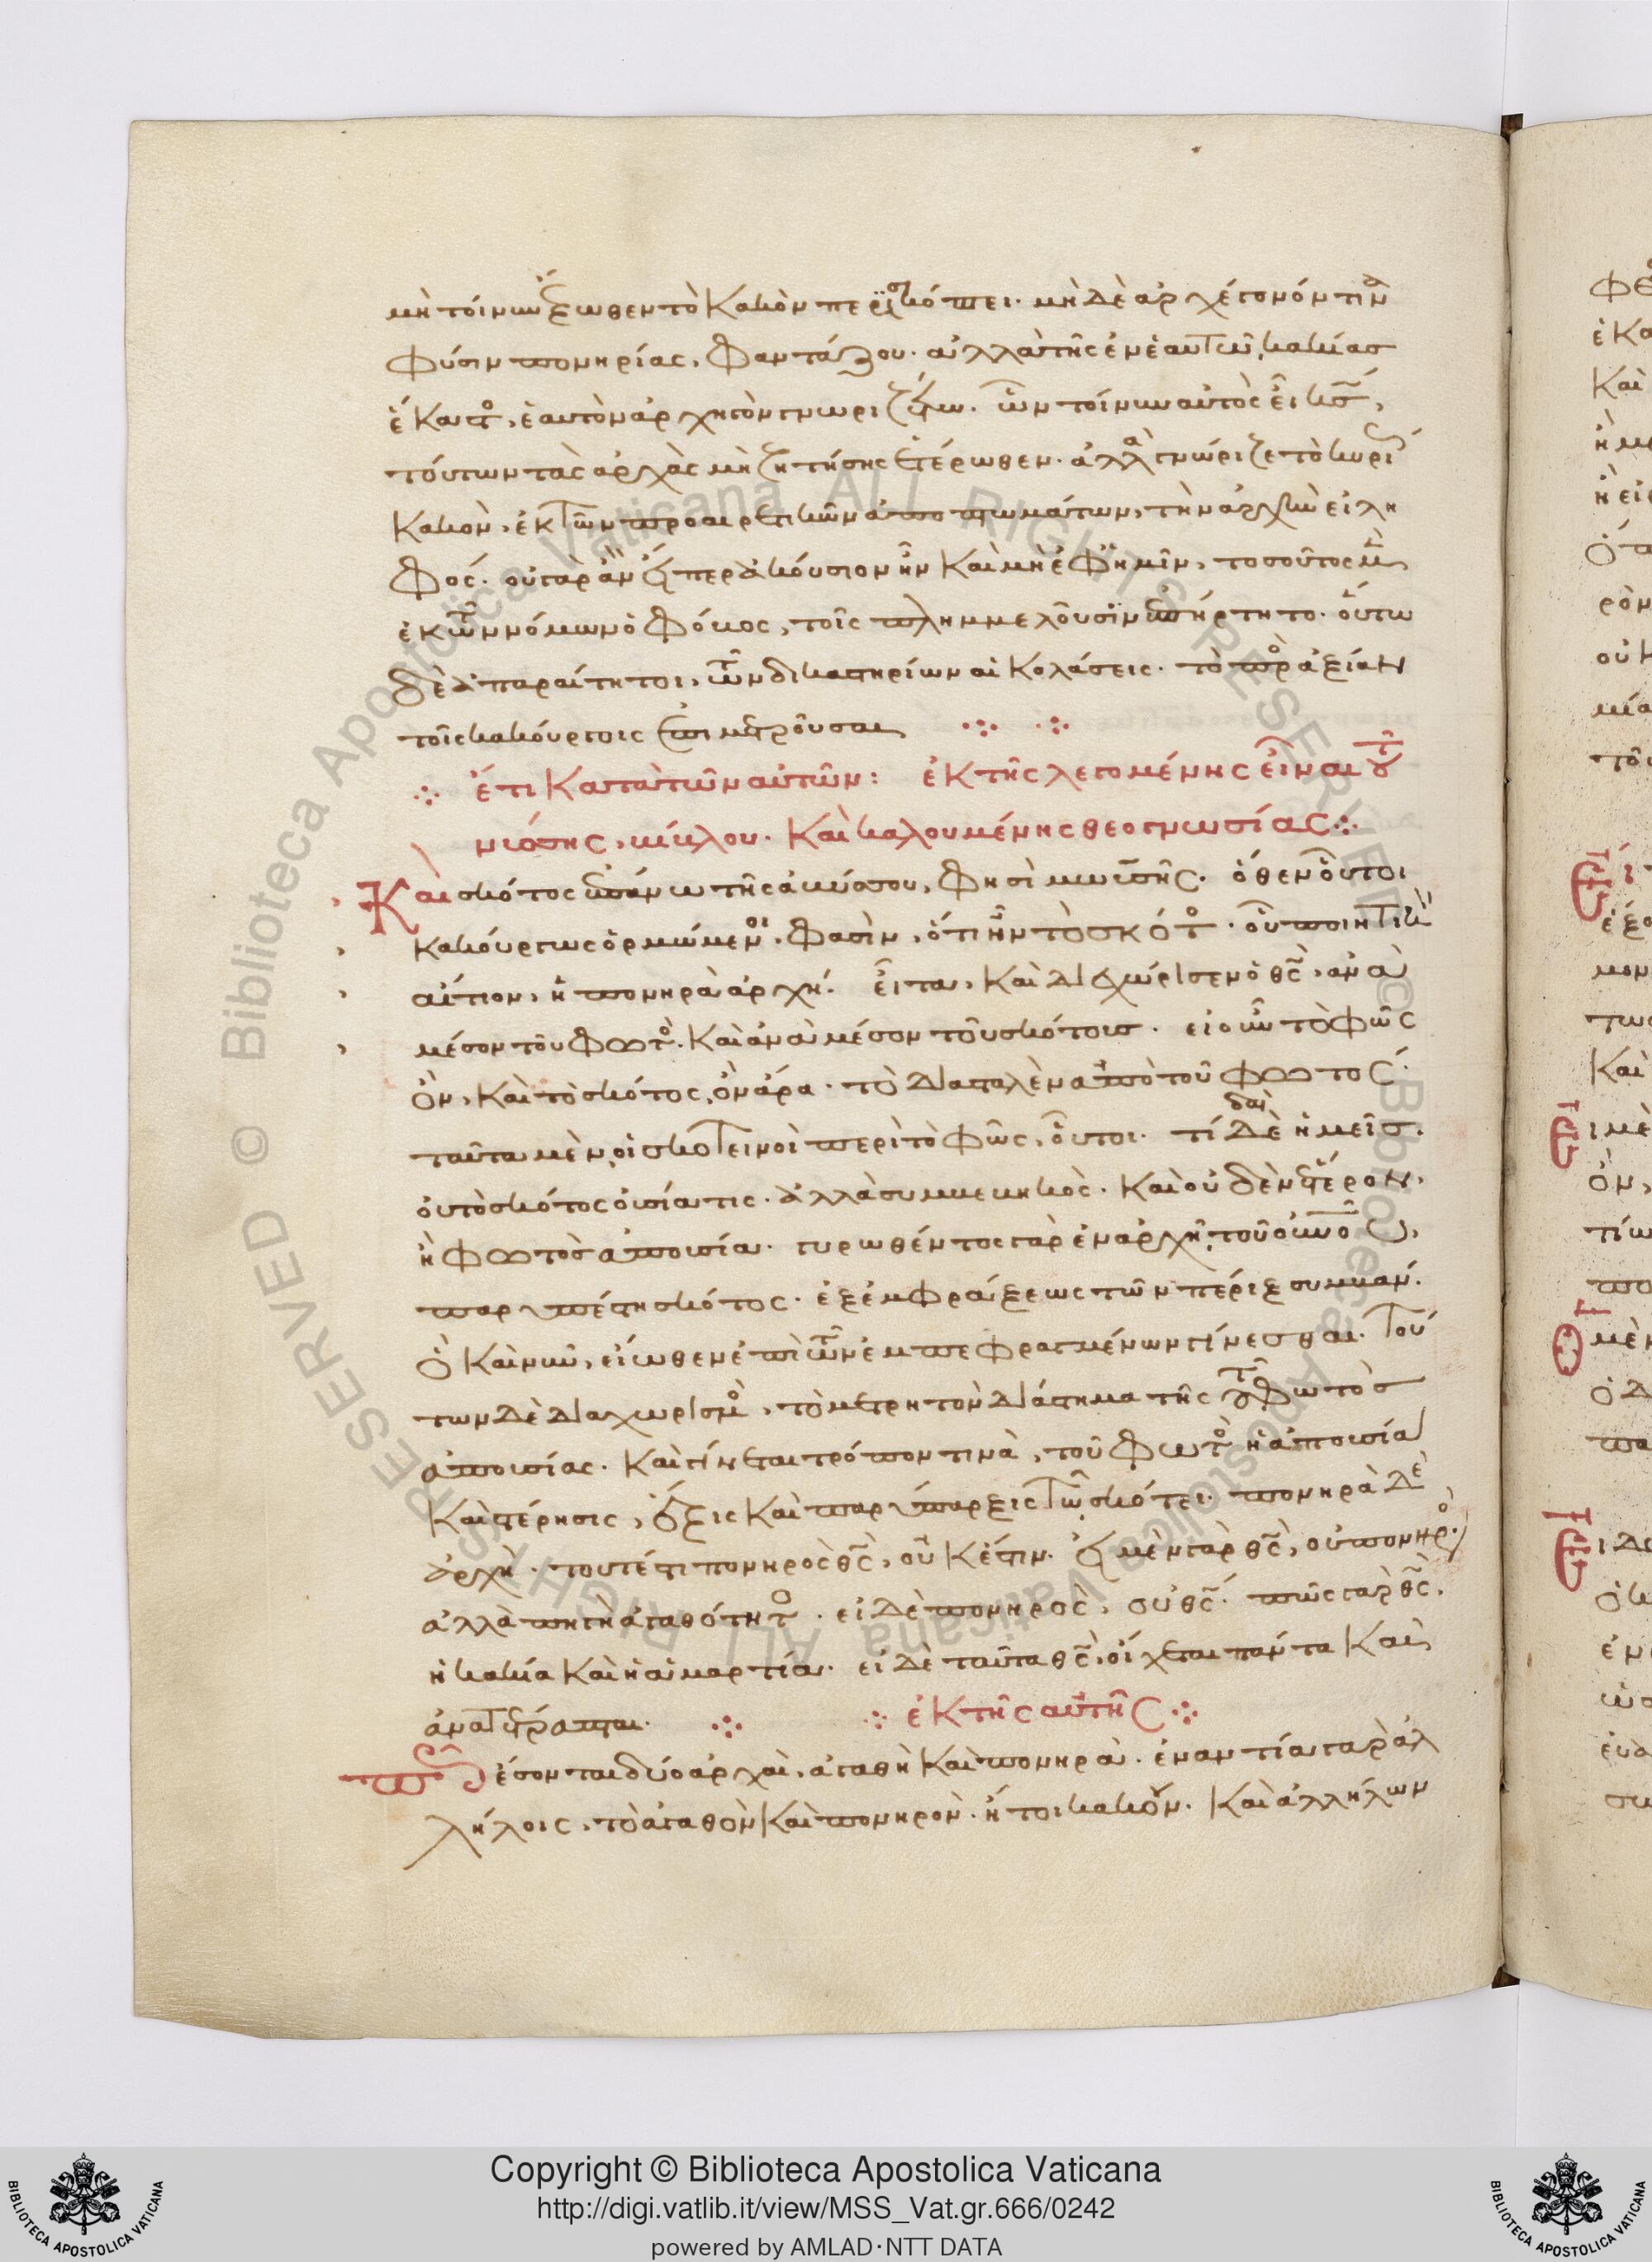 μὴ τοίνυν ἔξωθεν τὸ κακὸν περισκόπει. μὴ δὲ ἀρχέγονόν τινα
φύσιν πονηρίας, φαντάζου. ἀλλὰ τῆς ἐν ἑαυτῶ κακίας
ἕκαστος, ἑαυτὸν ἀρχηγὸν γνωριζέτω. ὧν τοίνυν αὐτὸς εἶ κύριος,
τούτων τὰς ἀρχὰς μὴ ζητήσης ἑτέρωθεν. ἀλλὰ γνώριζε τὸ κυρίως
κακὸν, ἐκ τῶν προαιρετικῶν ἀποπτωμάτων, τὴν ἀρχὴν εἰλη
φός. οὐ γὰρ ἂν εἴπερ ἀκούσιον ἦν καὶ μὴ ἐφ' ἡμῖν, τοσοῦτος μὲν
ἐκ τῶν νόμων ὁ φόβος, τοῖς πλημμελοῦσιν ἐπήρτητο. οὕτω
δὲ ἀπαραίτητοι, τῶν δικαστηρίων αἱ κολάσεις. τὸ πρὸς ἀξίαν
τοῖς κακούργοις ἐπιμετροῦσαι
ἔτι κατὰ τῶν αὐτῶν: ἐκ τῆς λεγομένης εἶναι τοῦ
νύσης, κύκλου. καὶ καλουμένης θεογνωσίας
Καὶ σκότος ἐπάνω τῆς ἀβύσσου, φησὶ μωϋσῆς. ὅθεν οὗτοι
κακούργως ὁρμώμενοι, φασὶν, ὅτι ἦν τὸ σκότος. οὗ ποιητικὸν
αἴτιον, ἡ πονηρὰ ἀρχή. εἶτα, καὶ διεχώρισεν ὁ θς, ἀνὰ
μέσον τοῦ φωτὸς. καὶ ἀνὰ μέσον τοῦ σκότους. εἰ οὖν τὸ φῶς
ὂν, καὶ τὸ σκότος, ὂν ἄρα. τὸ διασταλὲν ἀπὸ τοῦ φωτός.
ταῦτα μὲν, οἱ σκοτεινοὶ περὶ τὸ φῶς, οὗτοι. τί δὲ δαὶ ἡμεῖς.
οὐ τὸ σκότος οὐσία τις. ἀλλὰ συμβεβηκὸς. καὶ οὐδὲν ἕτερον,
ἢ φωτὸς ἀπουσία. γυρωθέντος γὰρ ἐν ἀρχῆ, τοῦ οὐνοῦ,
παρυπέστη σκότος. ἐξ ἐμφράξεως τῶν πέριξ συμβάν.
ὃ καὶ νῦν, εἴωθεν ἐπὶ τῶν ἐμπεφραγμένων γίνεσθαι. τού
των δὲ διαχωρισμὸς, τὸ μετρητὸν διάστημα τῆς τοῦ φωτὸς
ἀπουσίας. καὶ γίνεται τρόπον τινὰ, τοῦ φωτὸς ἡ ἀπουσία
καὶ στέρησις, ἕξις καὶ παρύπαρξις τῶ σκότει. πονηρὰ δὲ
ἀρχὴ. τουτέστι πονηρὸς θς, οὐκ ἔστιν. εἰ μὲν γὰρ θς, οὐ πονηρός.
ἀλλὰ πηγὴ ἀγαθότητος. εἰ δὲ πονηρὸς, οὐ θς. πῶς γὰρ θς,
ἡ κακία καὶ ἡ ἁμαρτία. εἰ δὲ ταῦτα θς, οἴχεται πάντα καὶ
ἀνατέτραπται.
ἐκ τῆς αὐτῆς
Πῶς ἔσονται δύο ἀρχαὶ, ἀγαθὴ καὶ πονηρὰ. ἐναντία γὰρ ἀλ
λήλοις, τὸ ἀγαθὸν καὶ πονηρὸν. ἤτοι κακὸν. καὶ ἀλλήλων
Copyright © Biblioteca Apostolica Vaticana
http://digi.vatlib.it/view/MSS_Vat.gr.666/0242
powered by AMLAD·NTT DATA